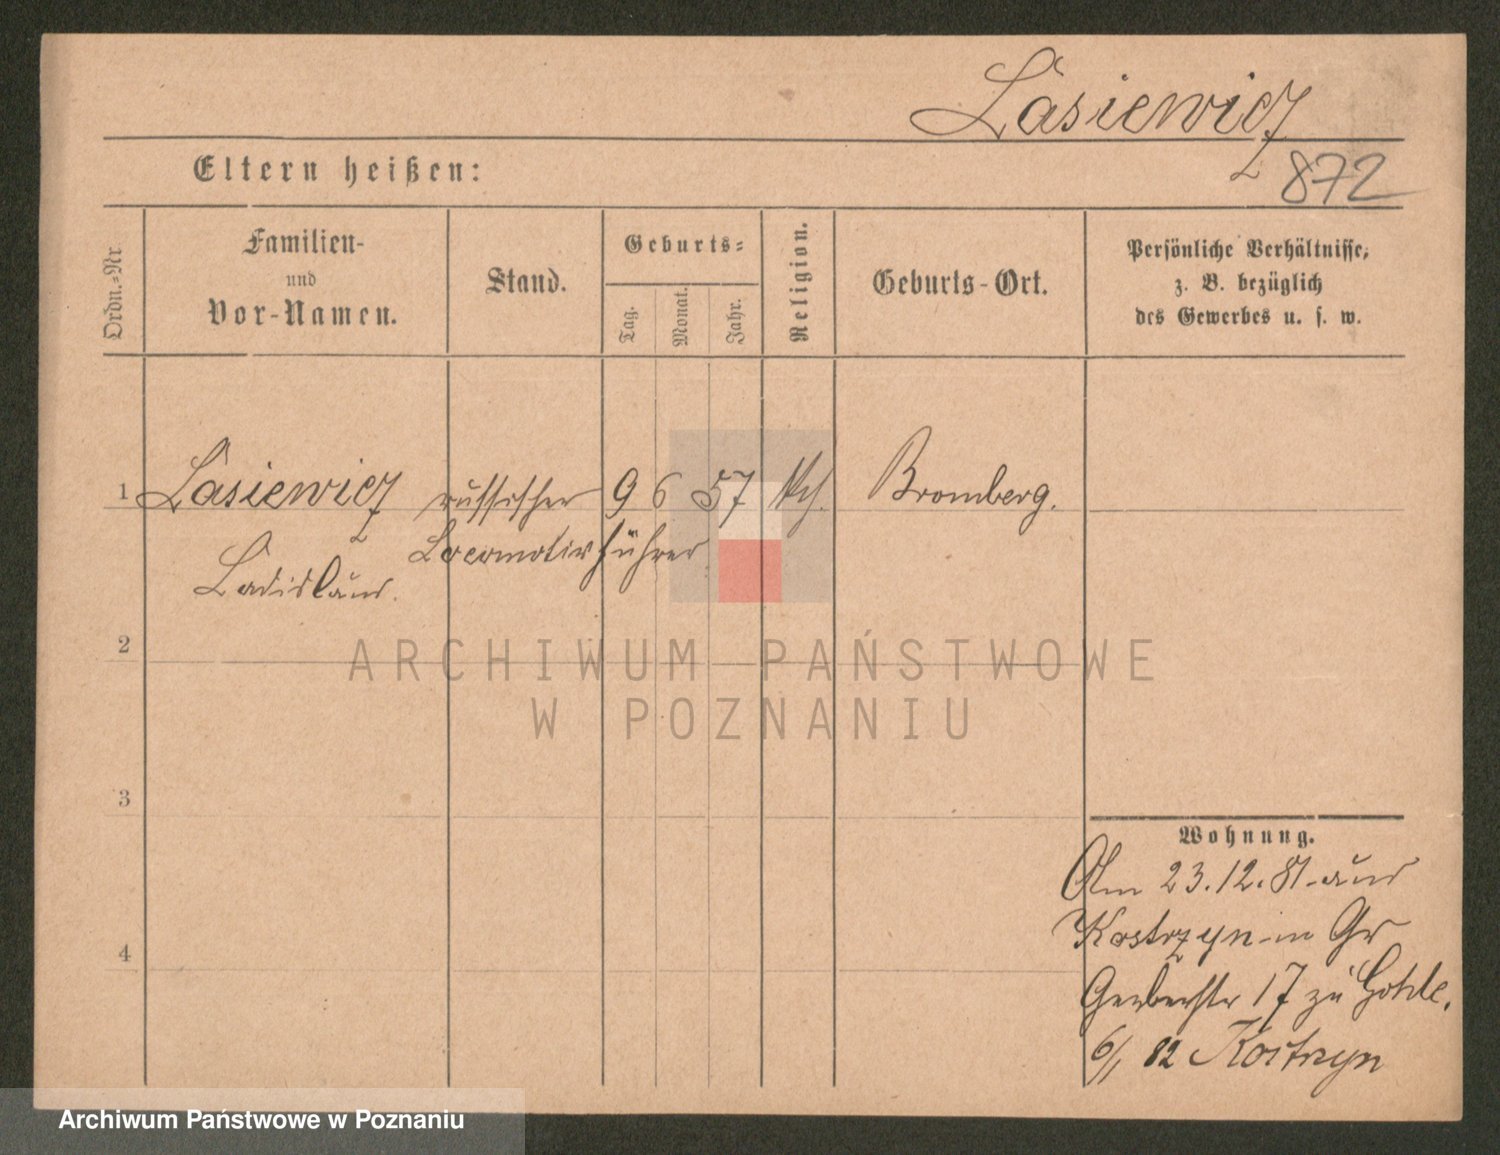 Lasiewicz
Eltern heißen:
872
Ordn.-Nr.
Familien-
und
Vor-Namen.
Stand.
Geburts-
Tag.
Monat.
Jahr.
Religion.
Geburts-Ort.
Persönliche Verhältnisse,
z. B. bezüglich
des Gewerbes u. s. w.
1 Lasiewicz russischer 9 6 57 Bromberg.
Locomotivführer
Ladislaus.
2
ARCHIWUM PAŃSTWOWE
W POZNANIU
3
Wohnung.
Am 23.12.81 aus
Kostrzyn in Gr
4
Gerberstr 17 zu
6/1 82 Kostrzyn
Archiwum Państwowe w Poznaniu